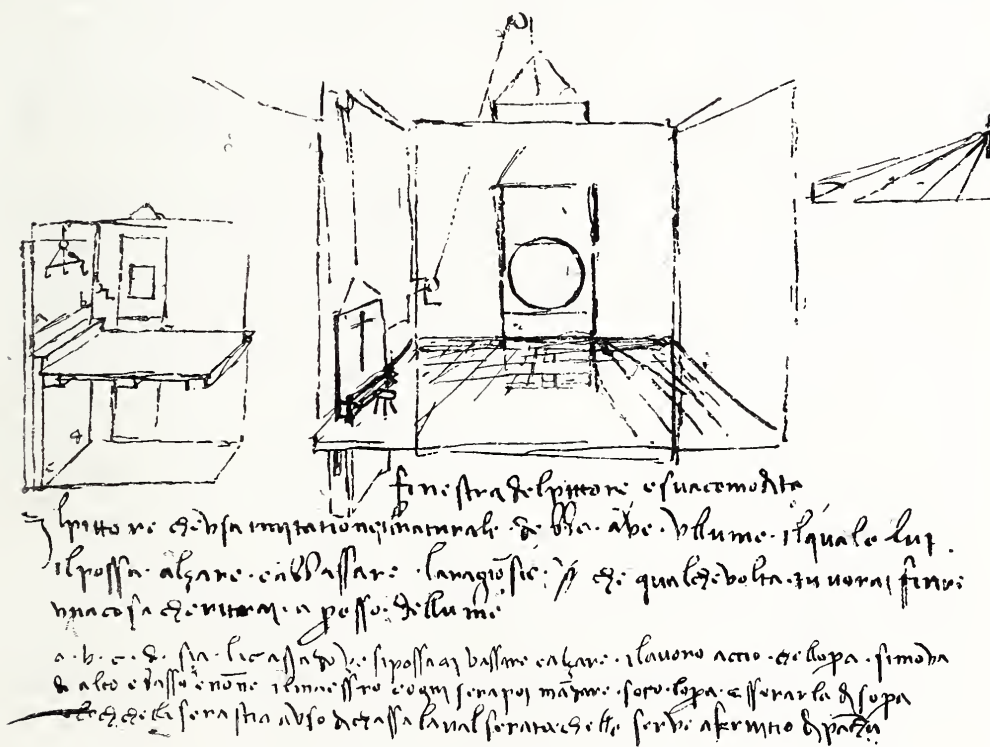 finestra del pittore e sua comodita
Il pittore che usa imitatione naturale de bbe. ave. Vllume. il quale lui.
il possa. alzare. e abbassare. la ragio si e. che qualche volta. tu vorai finire
una cosa che ritrai. a presso. del lume
a. b. c. d. sia. la cassa dove si possa bassare e alzare. il lavoro accio. che llopa. si mova
da alto e basso e none il maesstro e ogni sera poi mādare. soto. lopa. e serarla di sopa
che la sera stia a uso di chassa la qual serata che lle serve a servitio di pācha